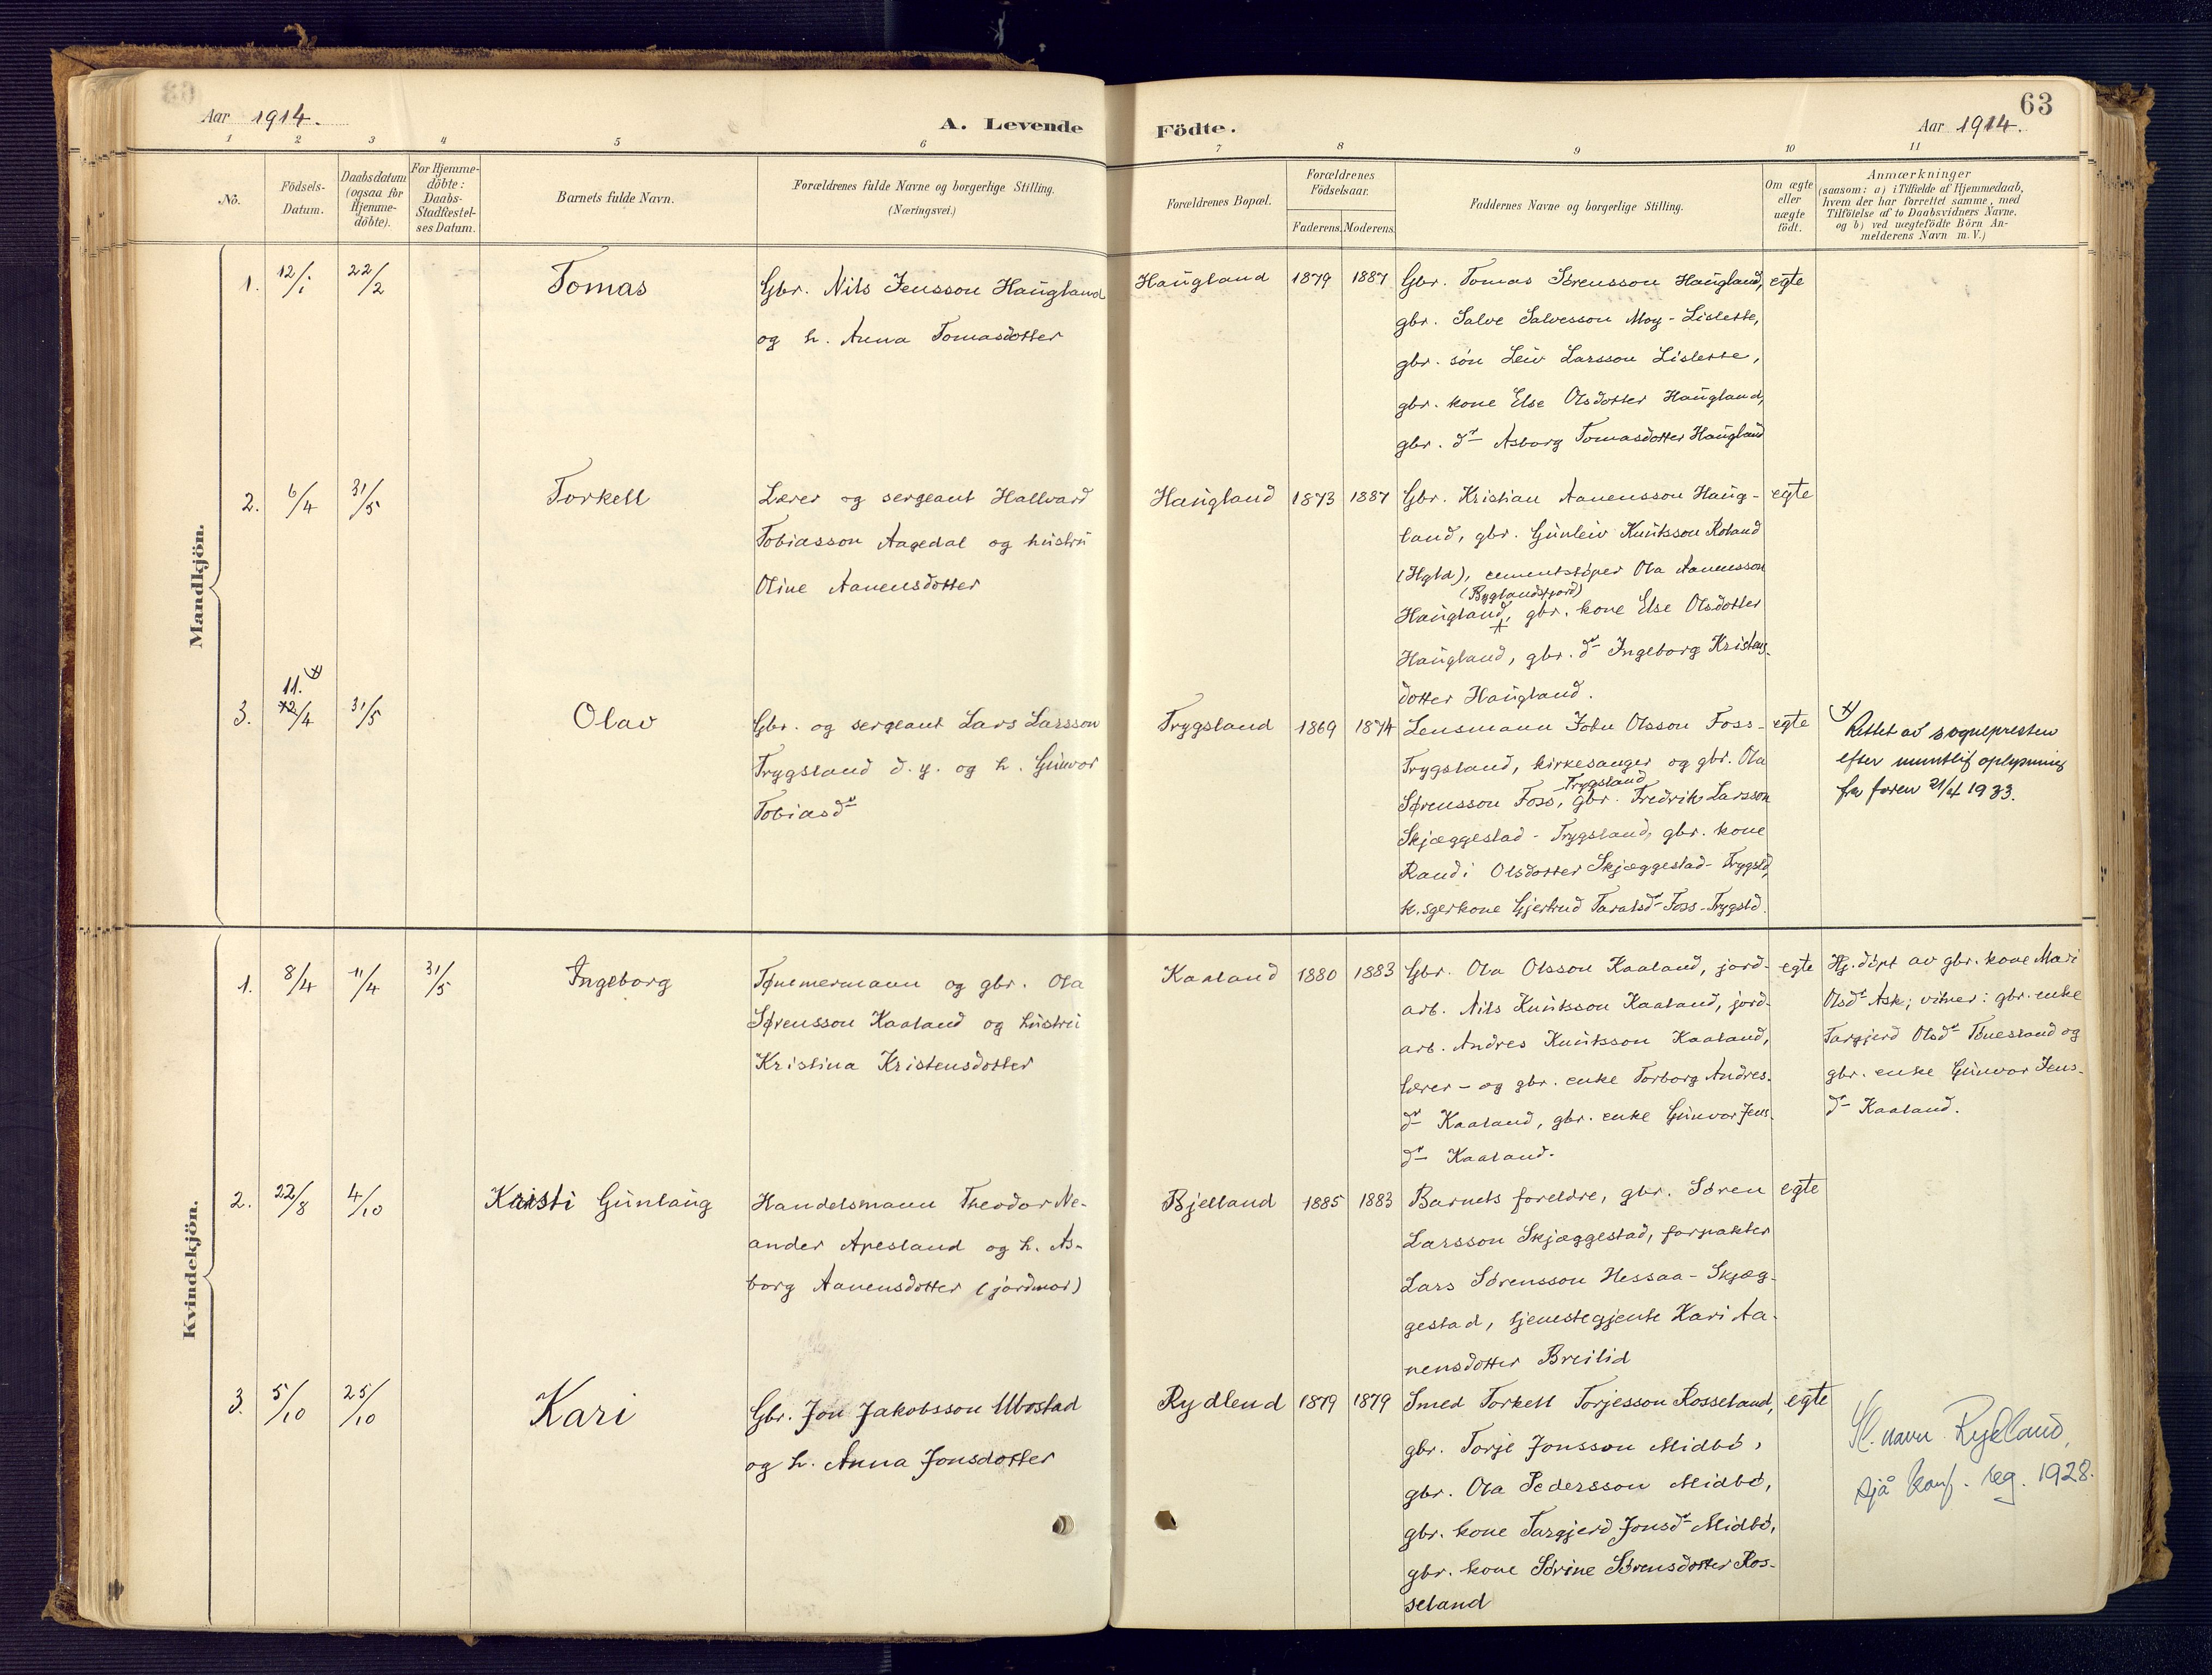 63
Aar 1914.
A. Levende Födte.
Aar 1914.
1 2 3 4 5 6 7 8 9 10 11
No.
Födsels-
Datum.
Daabsdatum
(ogsaa for
Hjemme-
döbte).
For Hjemme-
döbte:
Daabs-
Stadfæstel-
ses Datum.
Barnets fulde Navn.
Forældrenes fulde Navne og borgerlige Stilling.
(Næringsvei.)
Forældrenes Bopæl.
Forældrenes
Födselsaar.
Faderens. Moderens.
Faddernes Navne og borgerlige Stilling.
Om ægte
eller
uægte
födt.
Anmærkninger
(saasom: a) i Tilfælde af Hjemmedaab,
hvem der har forrettet samme, med
Tilföielse af to Daabsvidners Navne.
og b) ved uægtefödte Börn An-
melderens Navn m. V.)
Mandkjön.
1. 12/1 22/2 Tomas
Gbr. Nils Jensson Haugland
og h. Anna Tomasdotter
Haugland 1879 1887
Gbr. Tomas Sörensson Haugland,
gbr. Salve Salvesson Moy-Lislette,
gbr. sön Leiv Larsson Lislette,
gbr. kone Else Olsdotter Haugland,
gbr. dr Asborg Tomasdotter Haugland
egte
2. 6/4 31/5 Torkell
Lærer og sergeant Hallvard
Tobiasson Aagedal og hustru
Oline Aanensdotter
Haugland 1873 1887
Gbr. Kristian Aanensson Haug-
land, gbr. Gunleiv Knutsson Roland
(Hgld), cementstöper Ola Aanensson
(Byglandsfjord)
Haugland, gbr. kone Else Olsdotter
Haugland, gbr. dr Ingeborg Kristens-
dotter Haugland.
egte
11. x)
3. 12/4 31/5 Olav
Gbr. og sergeant Lars Larsson
Trygsland d. y. og h. Gunvor
Tobiasdr
Trygsland 1869 1874
Lensmann John Olsson Foss-
Trygsland, kirkesanger og gbr. Ola
Trygsland
Sørensson Foss, gbr. Fredrik Larsson
Skjæggestad-Trygsland, gbr. kone
Randi Olsdotter Skjæggestad-Trygsld,
k.sgerkone Gjertrud Taraldsdr Foss-Trygsld.
egte
x) Rettet av sognepresten
efter muntlig oplysning
fra faren 21/4 1933.
Kvindekjön.
1. 8/4 11/4 31/5 Ingeborg
Tømmermann og gbr. Ola
Sørensson Kaaland og hustru
Kristina Kristensdotter
Kaaland 1880 1883
Gbr. Ola Olsson Kaaland, jord-
arb. Nils Knutsson Kaaland, jord-
arb. Andres Knutsson Kaaland,
lærer- og gbr. enke Torborg Andres-
dr Kaaland, gbr. enke Gunvor Jens-
dr Kaaland.
egte
Hj. döpt av gbr. kone Mari
Olsdr Ask; vitner: gbr. enke
Targjerd Olsdr Tönesland og
gbr. enke Gunvor Jens-
dr Kaaland.
2. 22/8 4/10 Kristi Gunlaug
Handelsmann Theodor Ne-
ander Apesland og h. As-
borg Aanensdotter (jordmor)
Bjelland 1885 1883
Barnets foreldre, gbr. Sören
Larsson Skjæggestad, forpakter
Lars Sörensson Hessaa-Skjæg-
gestad, tjenestegjente Kari Aa-
nensdotter Breilid
egte
3. 5/10 25/10 Kari
Gbr. Jon Jakobsson Ubostad
og h. Anna Jonsdotter
Rydlend 1879 1879
Smed Torkell Torjesson Rosseland,
gbr. Torje Jonsson Midbö,
gbr. Ola Pedersson Midbö,
gbr. kone Targjerd Jonsdr Midbö,
gbr. kone Sörine Sörensdotter Ros-
seland
egte
Sl. navn Rydland,
sjå konf. reg. 1928.